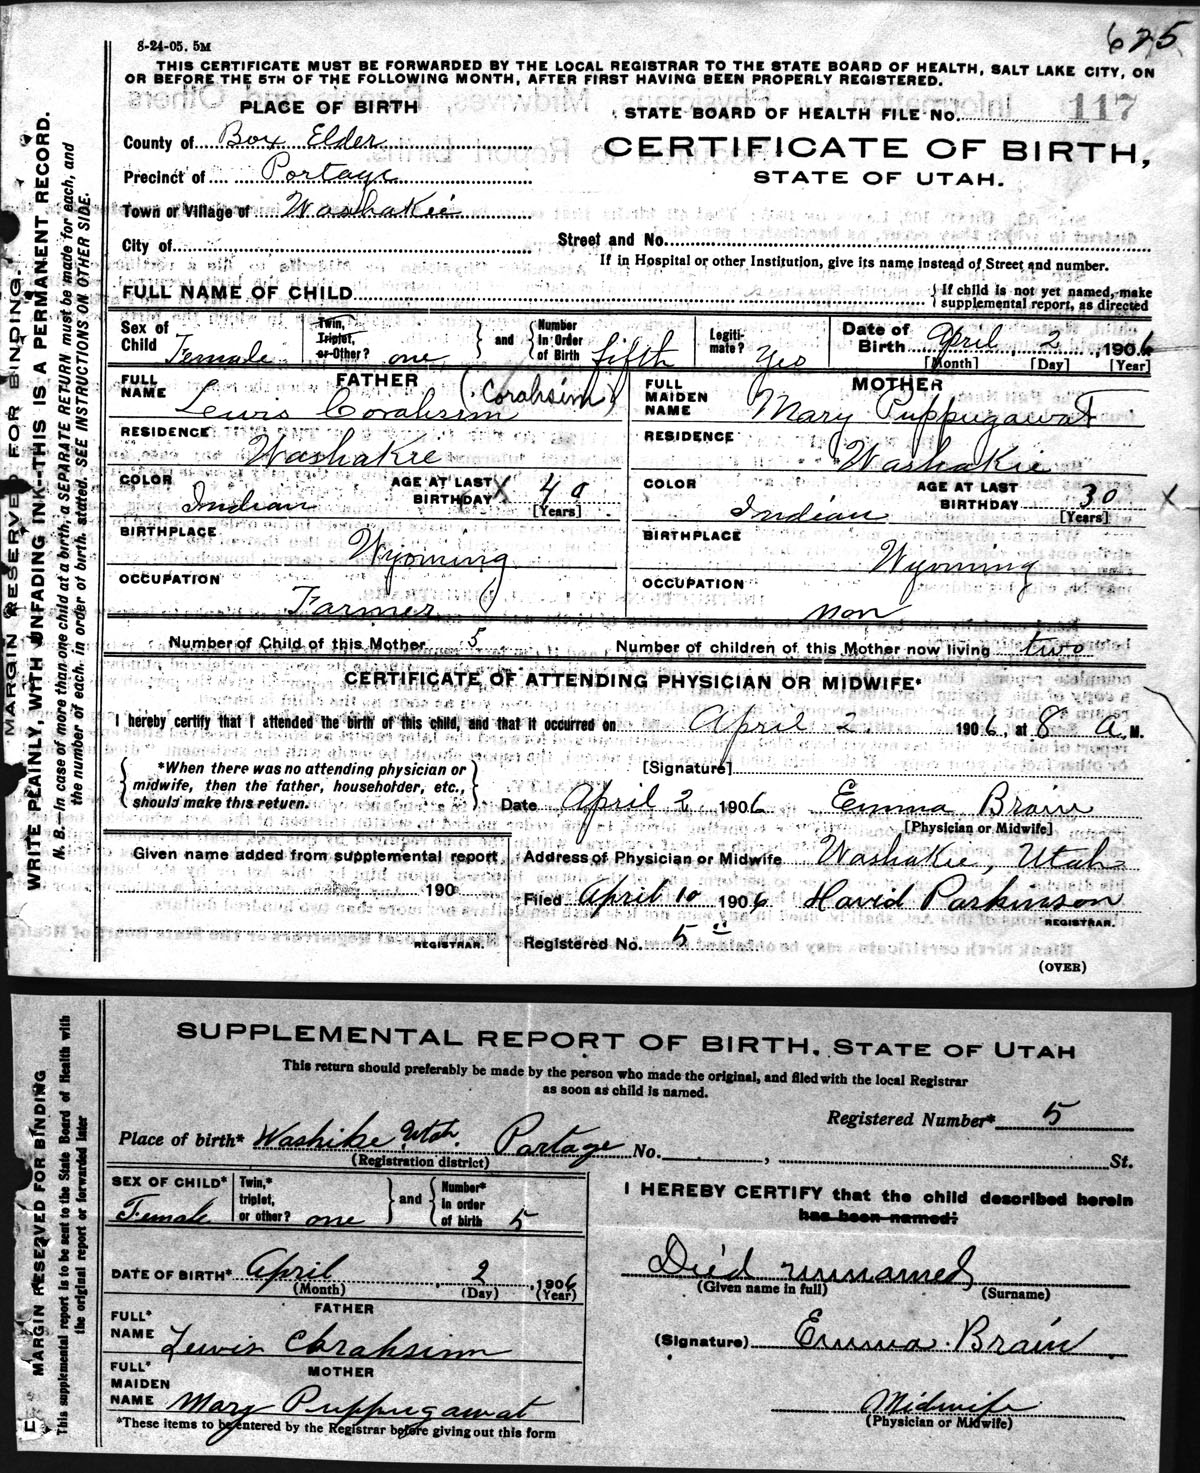 625
8-24-05. 5M
THIS CERTIFICATE MUST BE FORWARDED BY THE LOCAL REGISTRAR TO THE STATE BOARD OF HEALTH, SALT LAKE CITY, ON
OR BEFORE THE 5TH OF THE FOLLOWING MONTH, AFTER FIRST HAVING BEEN PROPERLY REGISTERED.
PLACE OF BIRTH
STATE BOARD OF HEALTH FILE No. 117
County of Box Elder
CERTIFICATE OF BIRTH,
STATE OF UTAH.
Precinct of Portage
Town or Village of Washakie
City of
Street and No.
If in Hospital or other Institution, give its name instead of Street and number.
FULL NAME OF CHILD
{ If child is not yet named, make
supplemental report, as directed
Sex of Child Female
Twin, Triplet, or Other? one } and { Number In Order of Birth fifth
Legitimate? Yes
Date of Birth April 2, 1906
[Month] [Day] [Year]
FATHER
FULL NAME Lewis Corahsim (Corahsim)
RESIDENCE Washakie
COLOR Indian
AGE AT LAST BIRTHDAY X 40
[Years]
BIRTHPLACE Wyoming
OCCUPATION Farmer
MOTHER
FULL MAIDEN NAME Mary Puppugawat
RESIDENCE Washakie
COLOR Indian
AGE AT LAST BIRTHDAY 30 X
[Years]
BIRTHPLACE Wyoming
OCCUPATION non
Number of Child of this Mother 5
Number of children of this Mother now living two
CERTIFICATE OF ATTENDING PHYSICIAN OR MIDWIFE*
I hereby certify that I attended the birth of this child, and that it occurred on April 2 1906, at 8 A. M.
{ *When there was no attending physician or
midwife, then the father, householder, etc.,
should make this return. }
[Signature]
Date April 2 1906 Emma Brain
[Physician or Midwife]
Given name added from supplemental report
190
REGISTRAR.
Address of Physician or Midwife Washakie, Utah
Filed April 10 1906 David Parkinson
REGISTRAR.
Registered No. 5
(OVER)
MARGIN RESERVED FOR BINDING.
WRITE PLAINLY, WITH UNFADING INK--THIS IS A PERMANENT RECORD.
N. B.—In case of more than one child at a birth, a SEPARATE RETURN must be made for each, and
the number of each, in order of birth, stated. SEE INSTRUCTIONS ON OTHER SIDE.
SUPPLEMENTAL REPORT OF BIRTH, STATE OF UTAH
This return should preferably be made by the person who made the original, and filed with the local Registrar
as soon as child is named.
Registered Number* 5
Place of birth* Washike Utah. Portage No. , St.
(Registration district)
SEX OF CHILD* Female
Twin,* triplet, or other? one } and { Number* In order of birth 5
DATE OF BIRTH* April 2, 1906
(Month) (Day) (Year)
FATHER
FULL* NAME Lewis Chrahsim
MOTHER
FULL* MAIDEN NAME Mary Puppugawat
*These items to be entered by the Registrar before giving out this form
I HEREBY CERTIFY that the child described herein
has been named:
Died unnamed
(Given name in full) (Surname)
(Signature) Emma Brain
Midwife
(Physician or Midwife)
MARGIN RESERVED FOR BINDING
This supplemental report is to be sent to the State Board of Health with
the original report or forwarded later